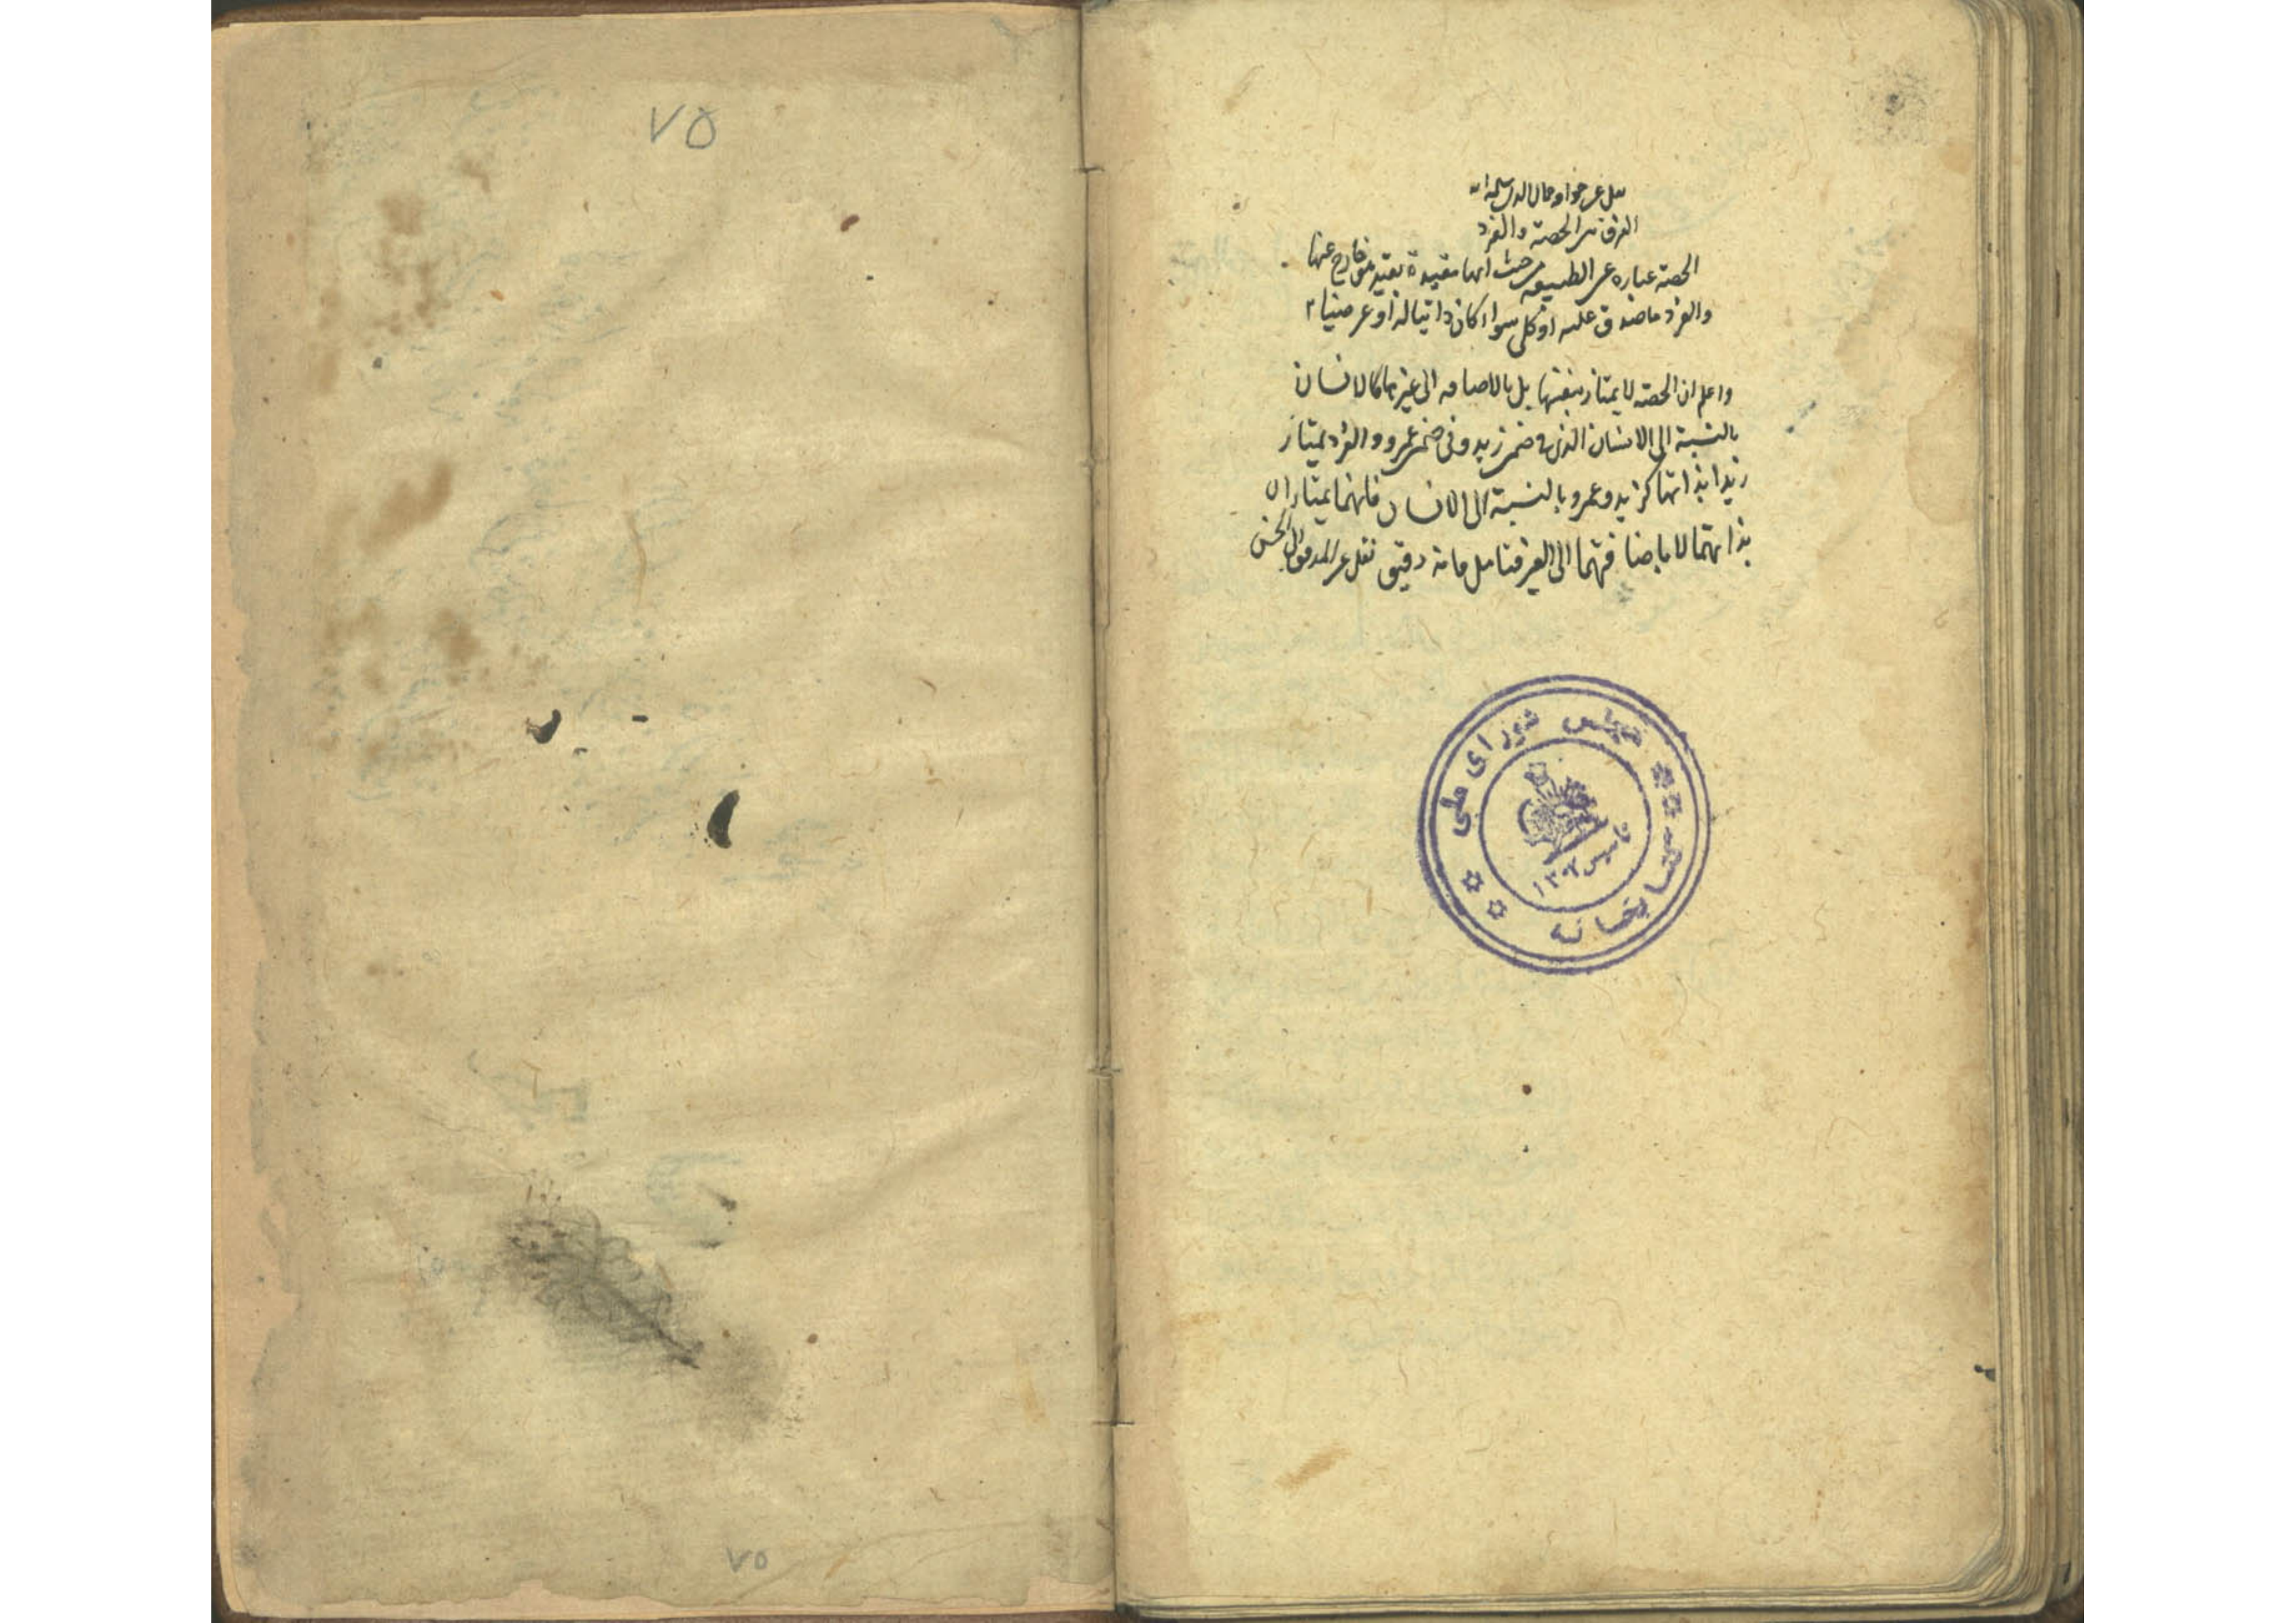 نقل عن خواجه جمال الدين سلمه الله
الفرق بين الحصة والفرد
الحصة عباره عن الطبيعه من حيث انها مقيدة بقيد هو خارج عنها
والفرد ما صدق عليه او كلى سواء كان ذاتيا له او عرضيا
واعلم ان الحصه لا يمتاز بنفسها بل بالاضافه الى غيرها كالانسان
بالنسبة الى الانسان الذى فى ضمن زيد وفى ضمن عمرو والفرد يمتاز
بذاتها كزيد وعمرو بالنسبة الى الانسان فانهما يمتازان
بذاتهما لا باضافتهما الى الغير فتامل فانه دقيق نقل عن المدقق
مجلس شوراى ملى
كتابخانه
تاسيس ١٣٠٢
٧٥
٧٥